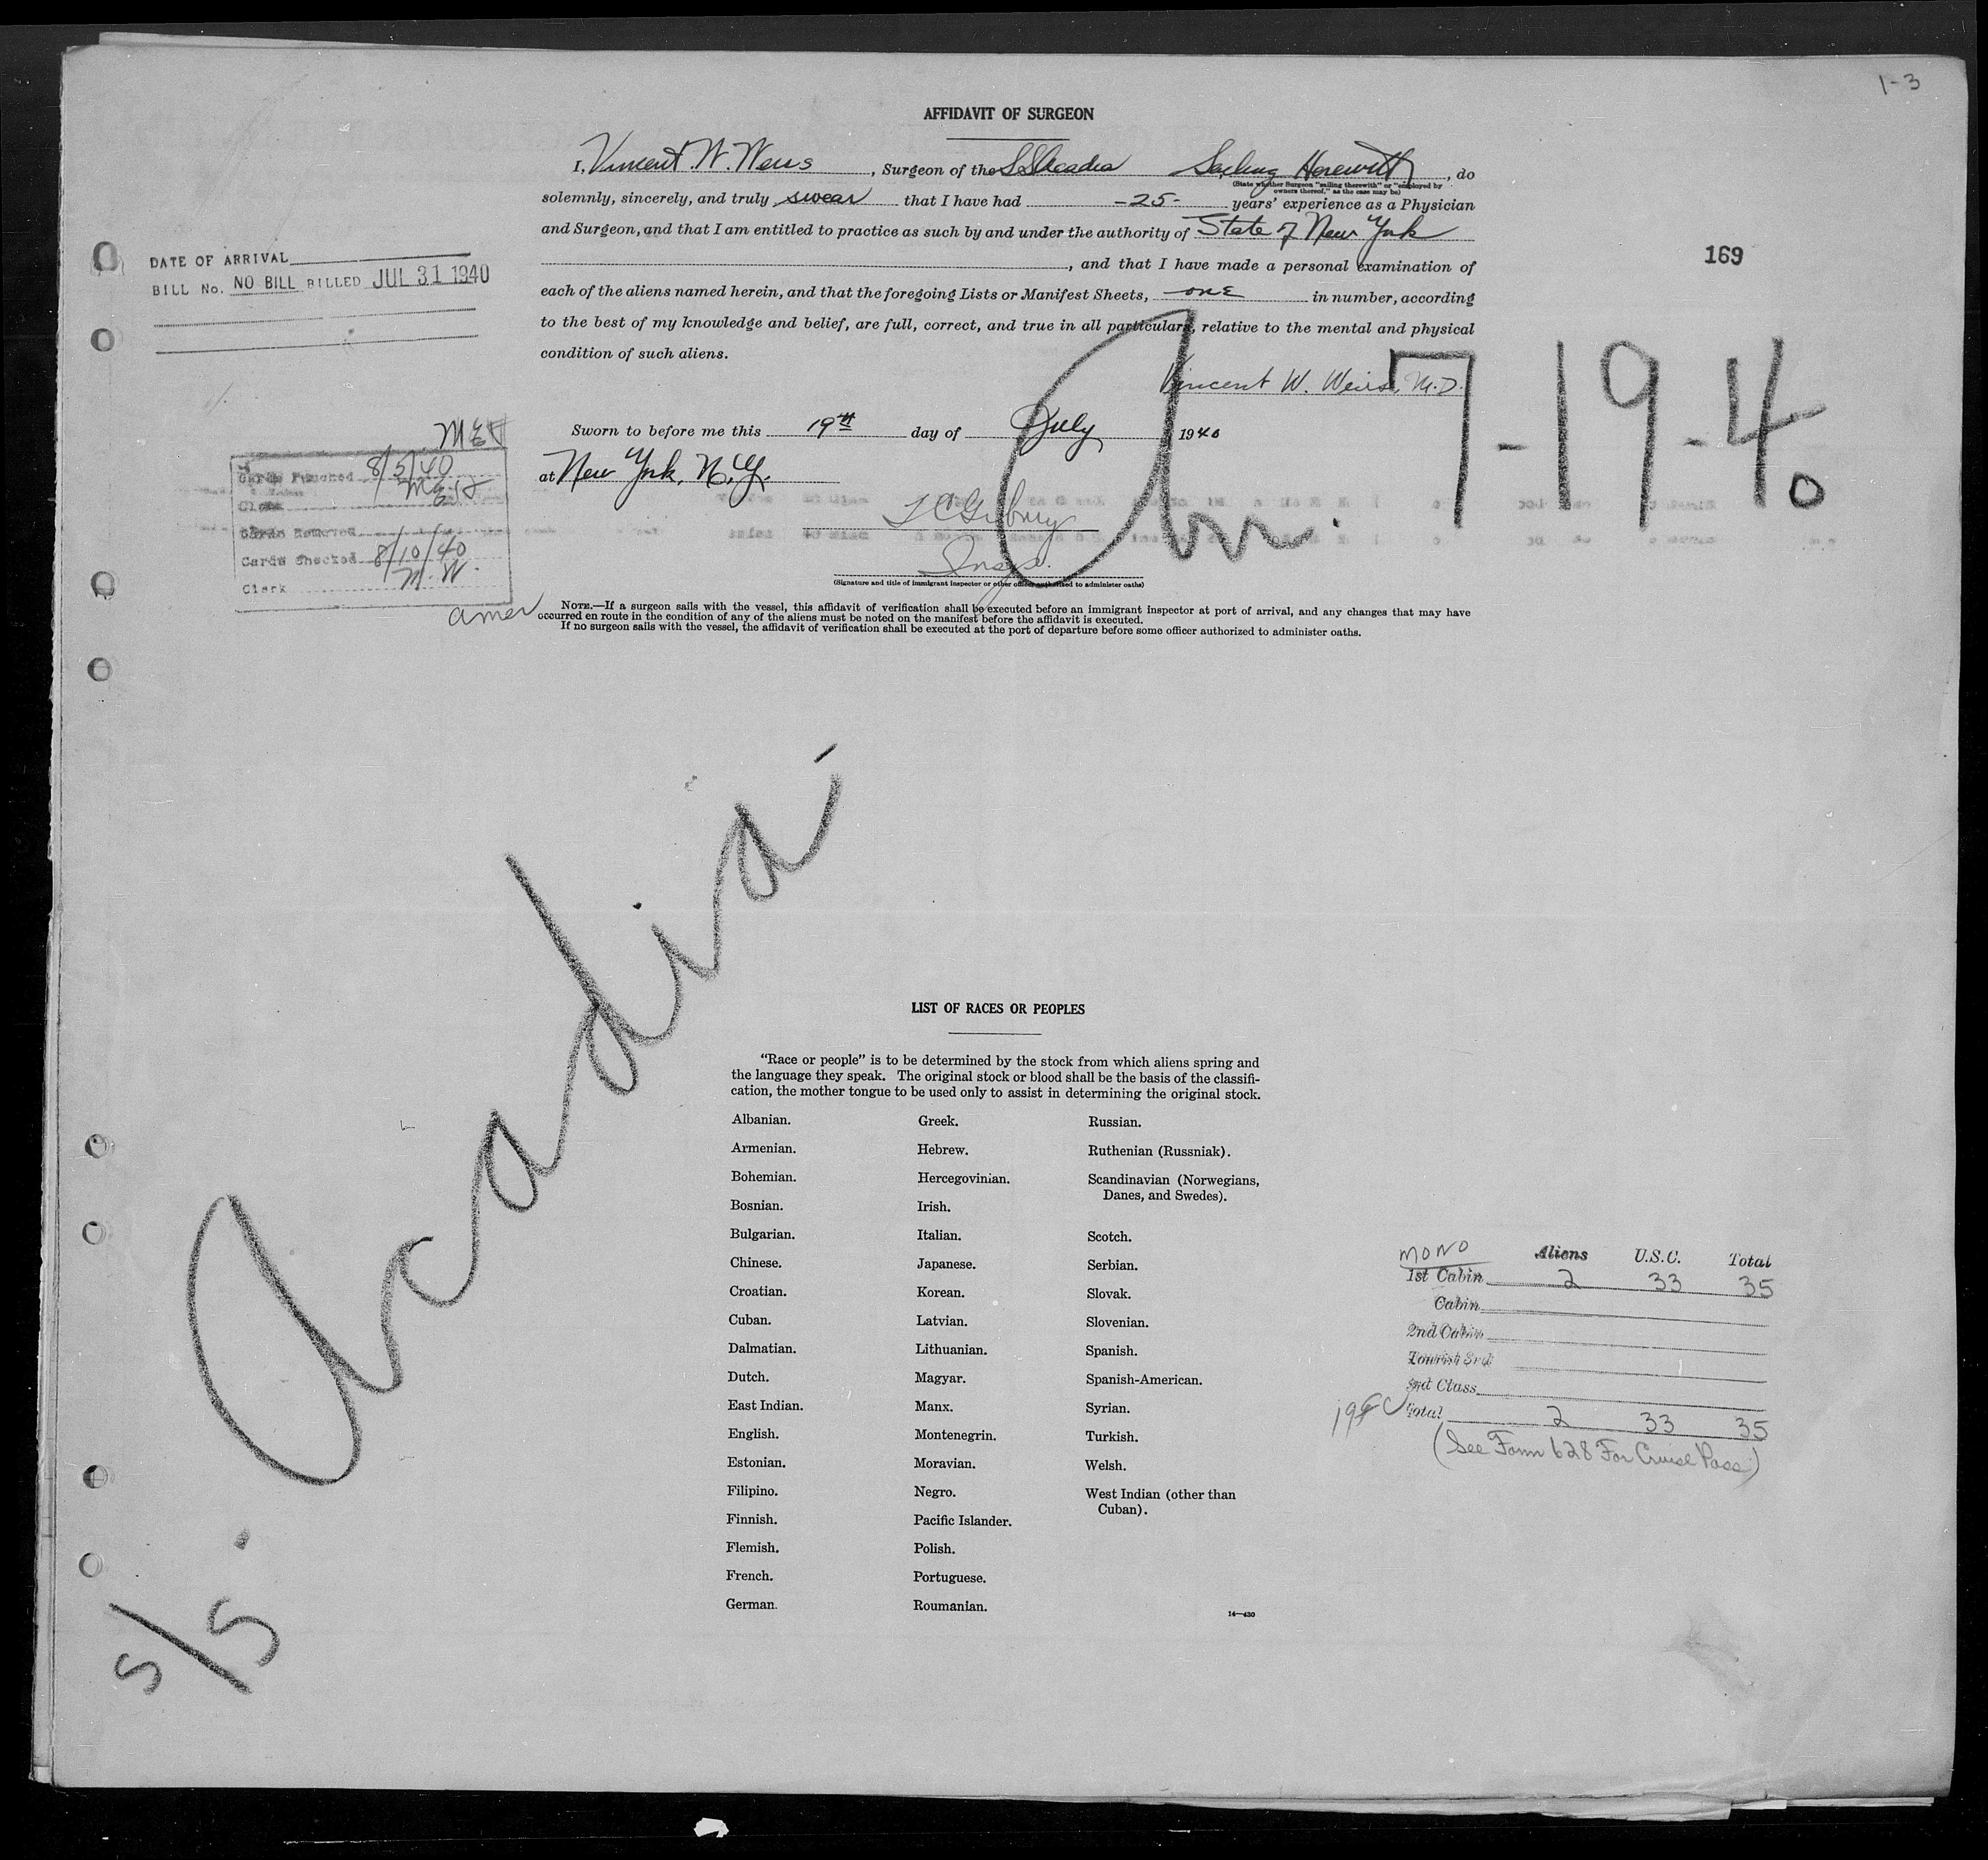 1-3
AFFIDAVIT OF SURGEON
I, Vincent W. Weiss, Surgeon of the SS Acadia Sailing Herewith, do
(State whether Surgeon "sailing therewith" or "employed by
owners thereof," as the case may be)
solemnly, sincerely, and truly swear that I have had -25- years' experience as a Physician
and Surgeon, and that I am entitled to practice as such by and under the authority of State of New York
, and that I have made a personal examination of
each of the aliens named herein, and that the foregoing Lists or Manifest Sheets, one in number, according
to the best of my knowledge and belief, are full, correct, and true in all particulars, relative to the mental and physical
condition of such aliens.
Vincent W. Weiss, M.D.
Sworn to before me this 19th day of July 1940
at New York, N.Y.
Insp.
(Signature and title of immigrant inspector or other officer authorized to administer oaths)
NOTE.—If a surgeon sails with the vessel, this affidavit of verification shall be executed before an immigrant inspector at port of arrival, and any changes that may have
occurred en route in the condition of any of the aliens must be noted on the manifest before the affidavit is executed.
If no surgeon sails with the vessel, the affidavit of verification shall be executed at the port of departure before some officer authorized to administer oaths.
DATE OF ARRIVAL
BILL No. NO BILL BILLED JUL 31 1940
169
Am. 7-19-40
Cards Punched 8/5/40
Clerk
Cards Removed
Cards Checked 8/10/40
Clerk M.W.
amer
S/S. Acadia
LIST OF RACES OR PEOPLES
"Race or people" is to be determined by the stock from which aliens spring and
the language they speak. The original stock or blood shall be the basis of the classifi-
cation, the mother tongue to be used only to assist in determining the original stock.
Albanian.
Armenian.
Bohemian.
Bosnian.
Bulgarian.
Chinese.
Croatian.
Cuban.
Dalmatian.
Dutch.
East Indian.
English.
Estonian.
Filipino.
Finnish.
Flemish.
French.
German.
Greek.
Hebrew.
Hercegovinian.
Irish.
Italian.
Japanese.
Korean.
Latvian.
Lithuanian.
Magyar.
Manx.
Montenegrin.
Moravian.
Negro.
Pacific Islander.
Polish.
Portuguese.
Roumanian.
Russian.
Ruthenian (Russniak).
Scandinavian (Norwegians,
Danes, and Swedes).
Scotch.
Serbian.
Slovak.
Slovenian.
Spanish.
Spanish-American.
Syrian.
Turkish.
Welsh.
West Indian (other than
Cuban).
14—430
MONO Aliens U.S.C. Total
1st Cabin 2 33 35
Cabin
2nd Cabin
Tourist 3rd
3rd Class
Total 2 33 35
(See Form 628 For Cruise Pass)